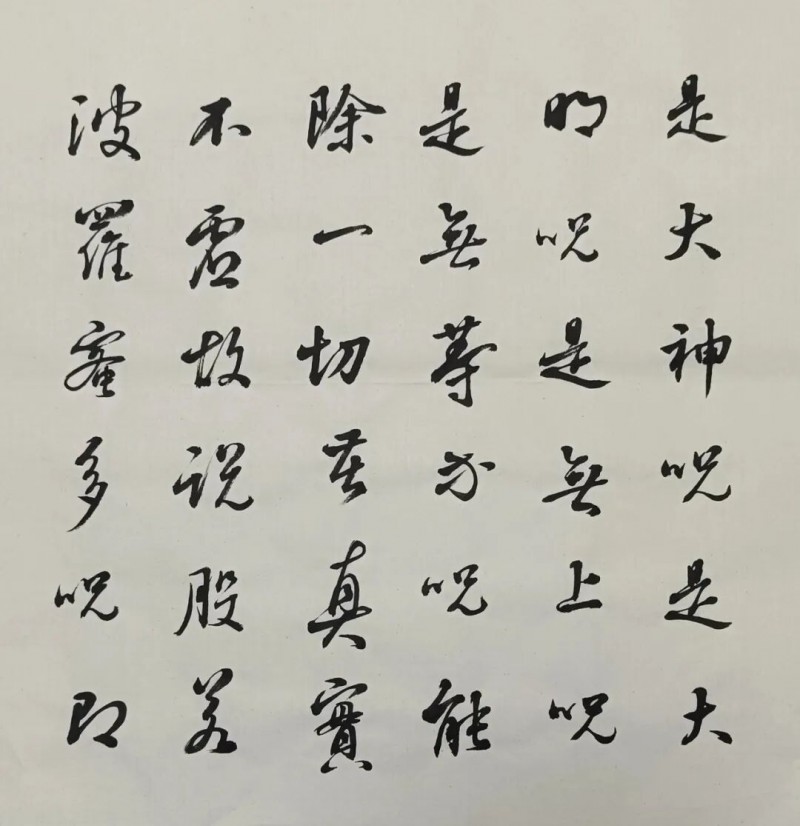 是大神呪是大
明呪是無上呪
是無等等呪能
除一切苦真實
不虛故說般若
波羅蜜多呪即